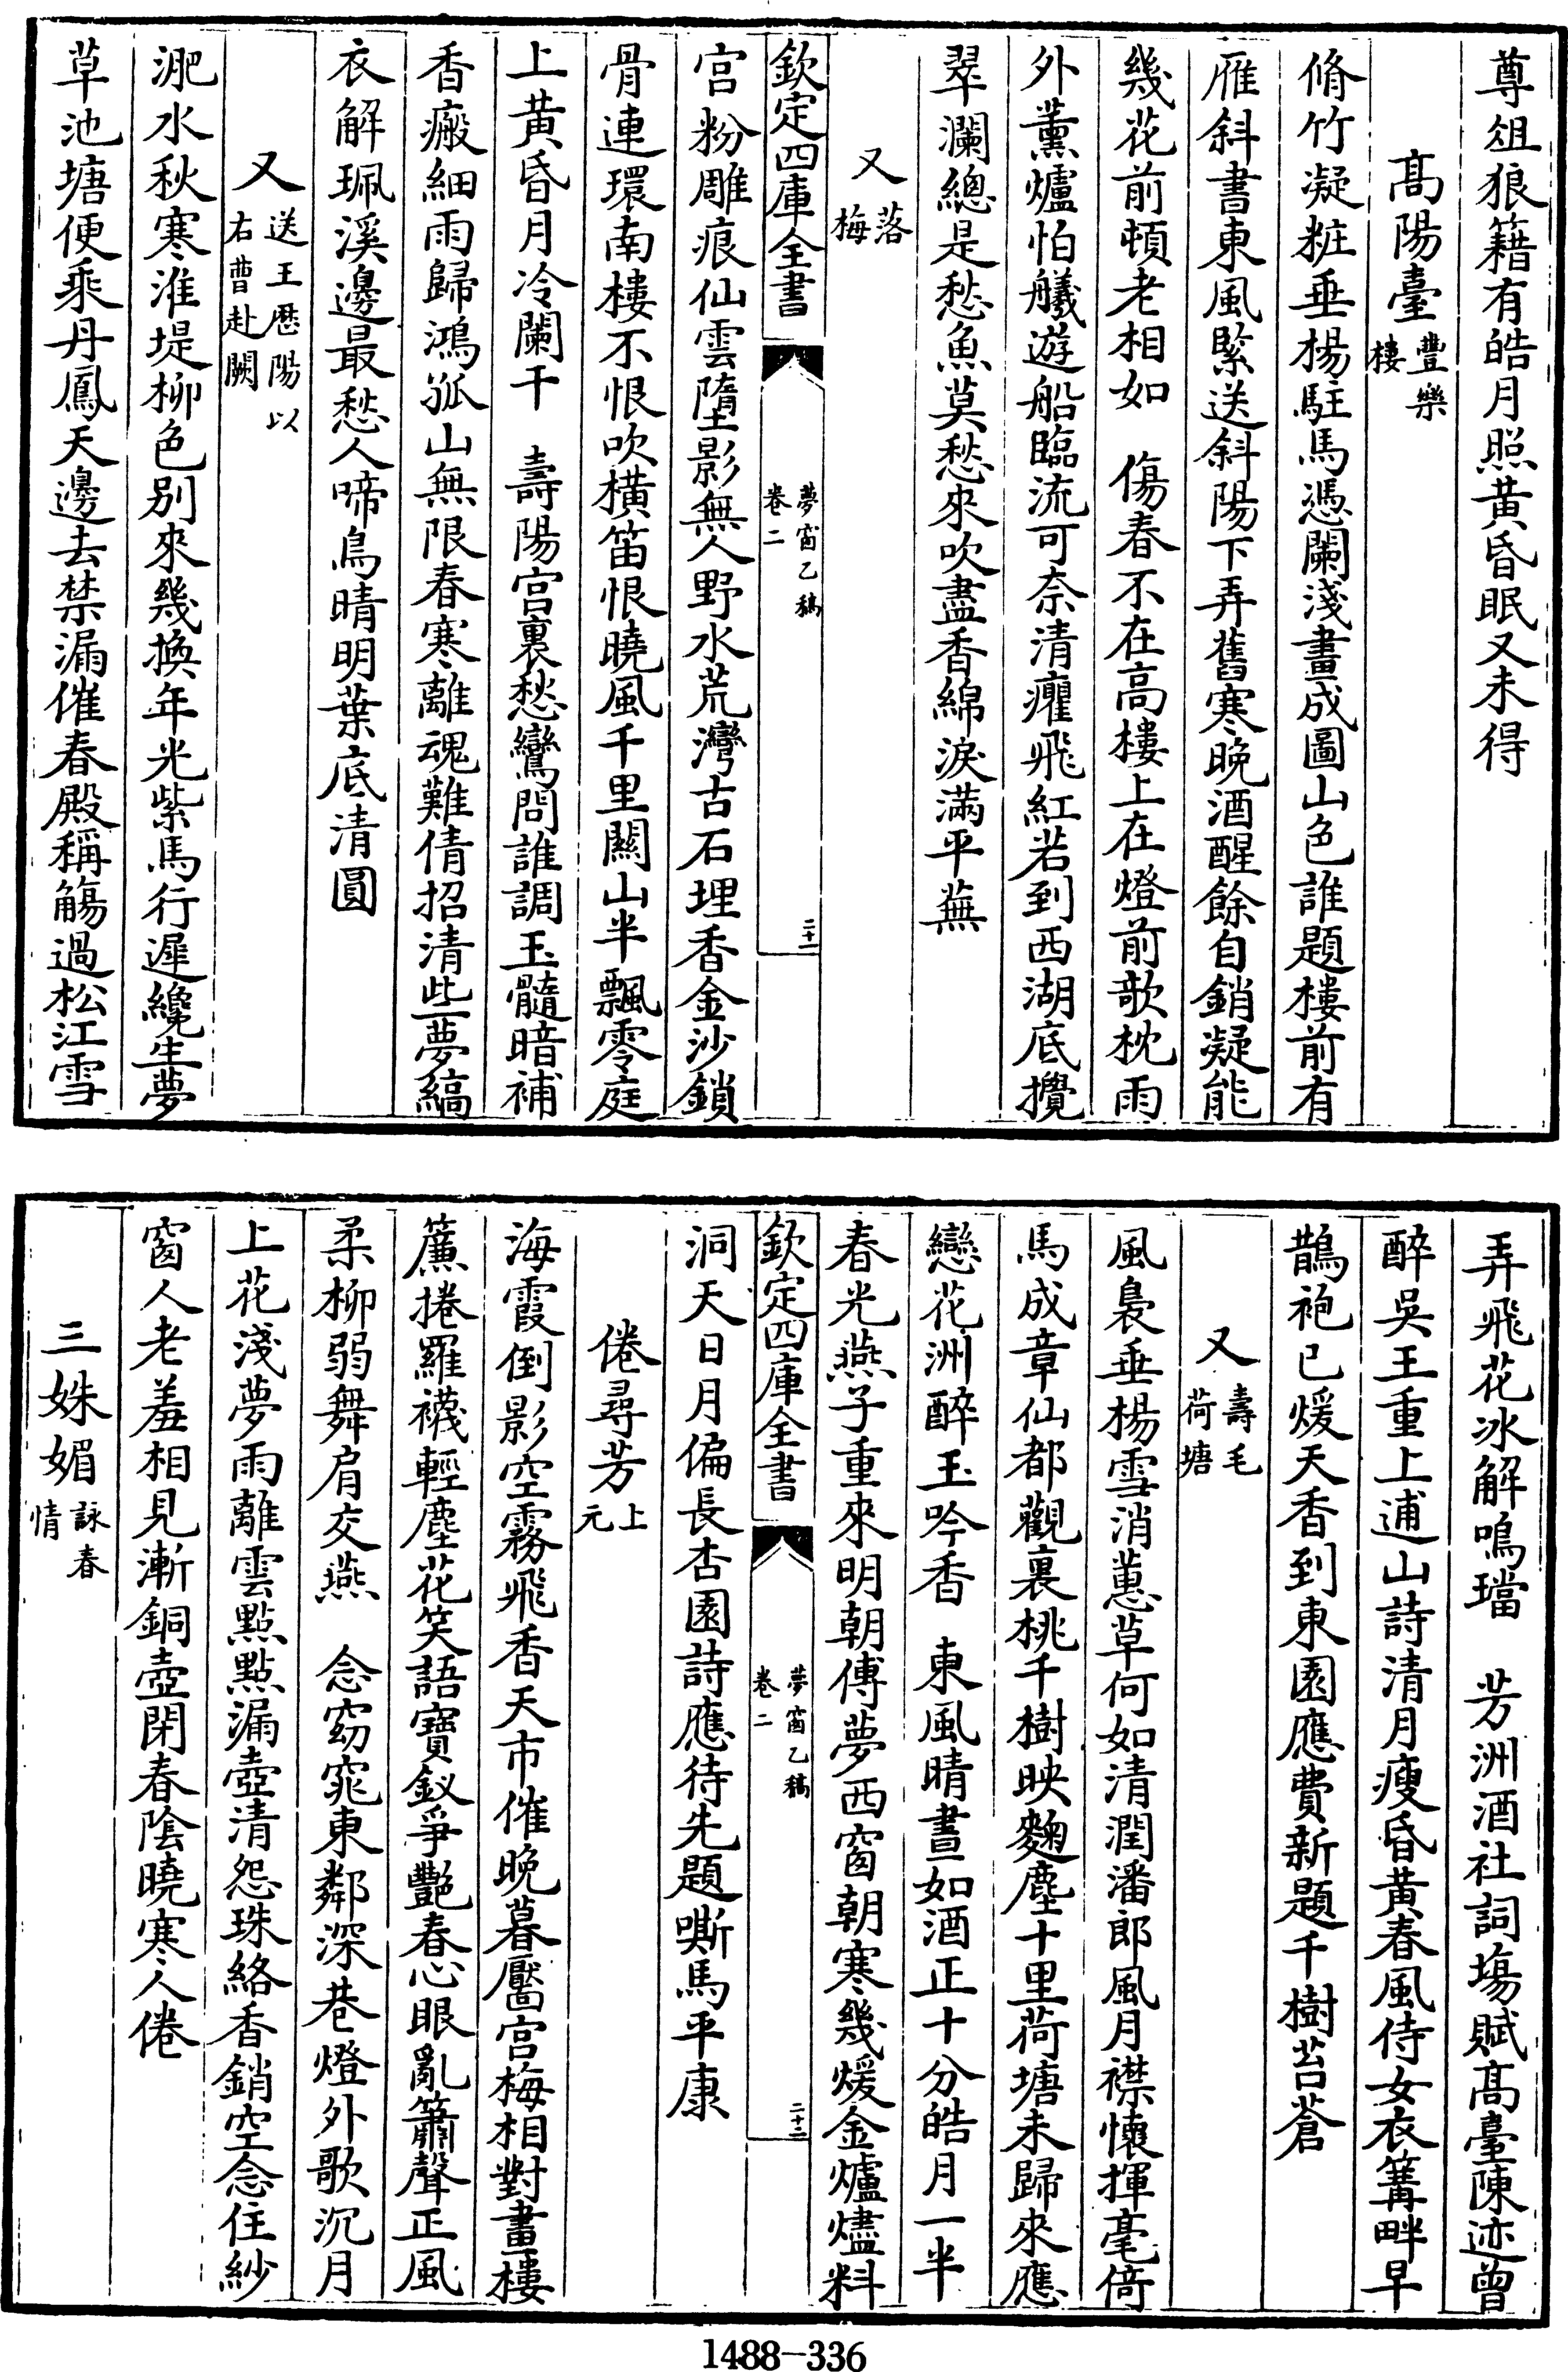 尊俎狼籍有皓月照黄昏眠又未得
髙陽臺豐樂樓
脩竹凝粧垂楊駐馬憑闌淺畫成圖山色誰題樓前有
雁斜書東風緊送斜陽下弄舊寒晚酒醒餘自銷凝能
幾花前頓老相如　傷春不在高樓上在燈前歌枕雨
外薰爐怕艤遊船臨流可奈清癯飛紅若到西湖底攪
翠瀾總是愁魚莫愁來吹盡香綿淚滿平蕪
又落梅
欽定四庫全書
夢窗乙稿
卷二
二十一
宫粉雕痕仙雲墮影無人野水荒灣古石埋香金沙鎖
骨連環南樓不恨吹横笛恨曉風千里關山半飄零庭
上黄昏月冷闌干　壽陽宫裏愁鸞問誰調玉髓暗補
香瘢細雨歸鴻孤山無限春寒離魂難倩招清些夢縞
衣解珮溪邊最愁人啼鳥晴明葉底清圓
又送王歴陽以右曹赴闕
淝水秋寒淮堤柳色别來幾換年光紫馬行遲纔生夢
草池塘便乘丹鳳天邊去禁漏催春殿稱觴過松江雪
弄飛花冰解鳴璫　芳洲酒社詞塲賦髙臺陳迹曾
醉吳王重上逋山詩清月瘦昏黄春風侍女衣篝畔早
鵲袍已煖天香到東園應費新題千樹苔蒼
又壽毛荷塘
風裊垂楊雪消蕙草何如清潤潘郎風月襟懷揮毫倚
馬成章仙都觀裏桃千樹映麴塵十里荷塘未歸來應
戀花洲醉玉吟香　東風晴晝如酒正十分皓月一半
春光燕子重來明朝傳夢西窗朝寒幾煖金爐燼料
欽定四庫全書
夢窗乙稿
卷二
二十二
洞天日月偏長杏園詩應待先題嘶馬平康
倦尋芳上元
海霞倒影空霧飛香天市催晚暮靨宫梅相對畫樓
簾捲羅襪輕塵花笑語寳釵爭艷春心眼亂簫聲正風
柔柳弱舞肩交燕　念窈窕東鄰深巷燈外歌沉月
上花淺夢雨離雲點點漏壺清怨珠絡香銷空念住紗
窗人老羞相見漸銅壺閉春陰曉寒人倦
三姝媚詠春情
1488-336